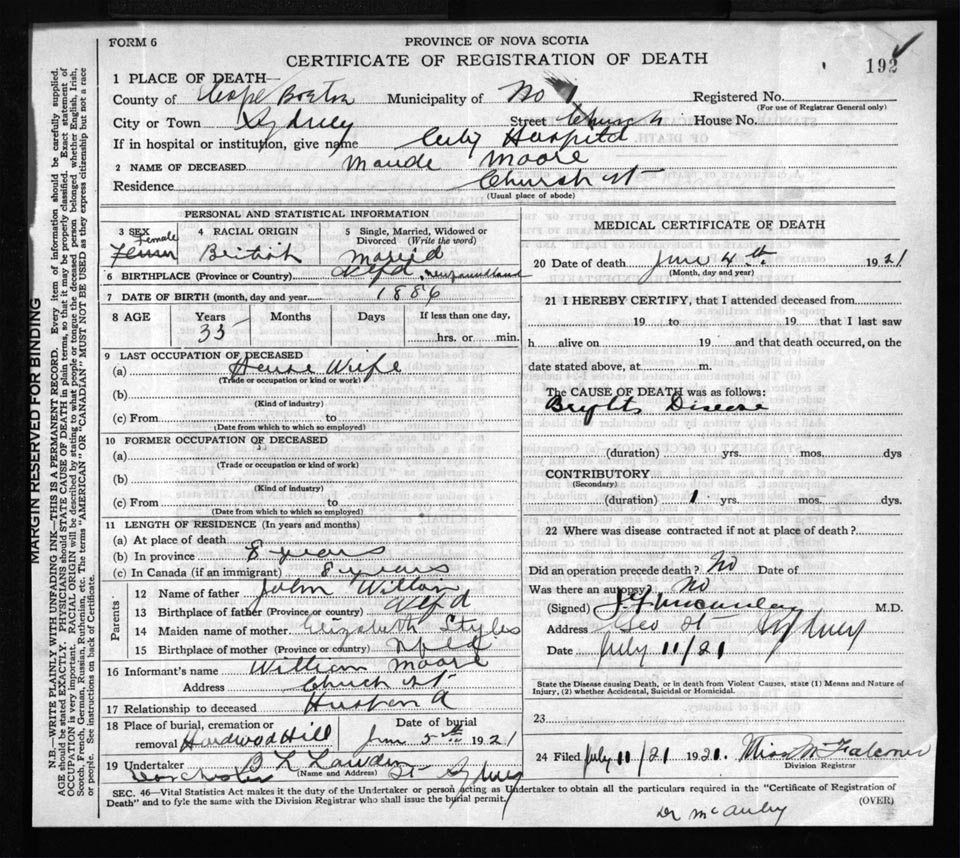 FORM 6
PROVINCE OF NOVA SCOTIA
CERTIFICATE OF REGISTRATION OF DEATH
192
1 PLACE OF DEATH—
County of Cape Breton Municipality of No 1 Registered No.
(For use of Registrar General only)
City or Town Sydney Street Church House No.
If in hospital or institution, give name City Hospital
2 NAME OF DECEASED Maude Moore
Residence Church St
(Usual place of abode)
PERSONAL AND STATISTICAL INFORMATION
3 SEX Female 4 RACIAL ORIGIN British 5 Single, Married, Widowed or Divorced (Write the word)
6 BIRTHPLACE (Province or Country) Nfld. Newfoundland
7 DATE OF BIRTH (month, day and year) 1886
8 AGE Years 35 Months Days If less than one day, hrs. or min.
9 LAST OCCUPATION OF DECEASED
(a) House Wife
(Trade or occupation or kind or work)
(b)
(Kind of industry)
(c) From to
(Date from which to which so employed)
10 FORMER OCCUPATION OF DECEASED
(a)
(Trade or occupation or kind of work)
(b)
(Kind of industry)
(c) From to
(Date from which to which so employed)
11 LENGTH OF RESIDENCE (In years and months)
(a) At place of death
(b) In province 8 years
(c) In Canada (if an immigrant) 8 years
Parents
12 Name of father John
13 Birthplace of father (Province or country) Nfld
14 Maiden name of mother Elizabeth Styles
15 Birthplace of mother (Province or country) Nfld
16 Informant's name William Moore
Address Church St
17 Relationship to deceased Husband
18 Place of burial, cremation or removal Hardwood Hill Date of burial June 5th 1921
19 Undertaker
(Name and Address) Dorchester St Sydney
SEC. 46—Vital Statistics Act makes it the duty of the Undertaker or person acting as Undertaker to obtain all the particulars required in the "Certificate of Registration of
Death" and to fyle the same with the Division Registrar who shall issue the burial permit.
(OVER)
MEDICAL CERTIFICATE OF DEATH
20 Date of death June 4th 1921
(Month, day and year)
21 I HEREBY CERTIFY, that I attended deceased from
19 to 19 that I last saw
h alive on 19 and that death occurred, on the
date stated above, at m.
The CAUSE OF DEATH was as follows:
Bryhts Disease
(duration) yrs. mos. dys
CONTRIBUTORY
(Secondary)
(duration) 1 yrs. mos. dys.
22 Where was disease contracted if not at place of death?
Did an operation precede death? No Date of
Was there an autopsy? no
(Signed) M.D.
Address Geo St Sydney
Date July 11/21
State the Disease causing Death, or in death from Violent Causes, state (1) Means and Nature of
Injury, (2) whether Accidental, Suicidal or Homicidal.
23
24 Filed July 11/21 1921. Miss M Falconer
Division Registrar
MARGIN RESERVED FOR BINDING
N.B.—WRITE PLAINLY WITH UNFADING INK—THIS IS A PERMANENT RECORD. Every item of information should be carefully supplied.
AGE should be stated EXACTLY. PHYSICIANS should STATE CAUSE OF DEATH in plain terms, so that it may be properly classified. Exact statement of
OCCUPATION is very important. RACIAL ORIGIN will be described by stating to what people or tongue the deceased person belonged, whether English, Irish,
Scotch, French, German, Russian, Ruthenian, etc. The terms "AMERICAN" or "CANADIAN" MUST NOT BE USED as they express citizenship but not a race
or people. See instructions on back of Certificate.